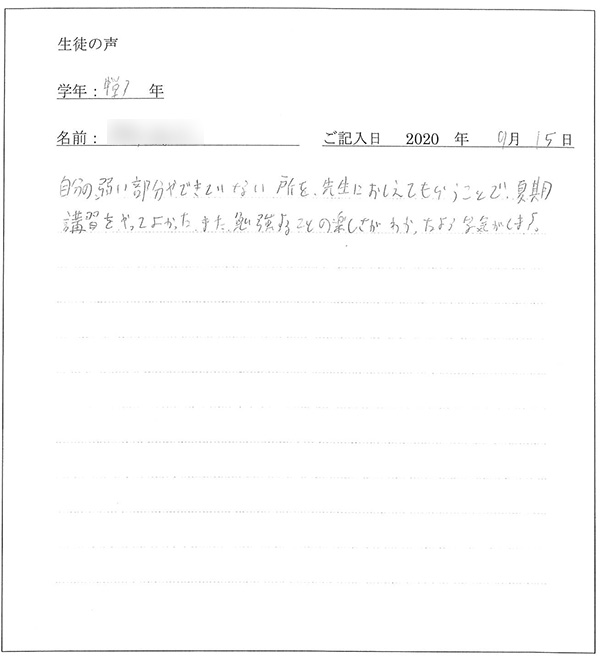 生徒の声
学年: 年
名前:
ご記入日 2020 年 9月 15日
自分の弱い部分やできていない所を、先生におしえてもらうことで、夏期
講習をやってよかった。また、勉強することの楽しさがわかったような気がします。